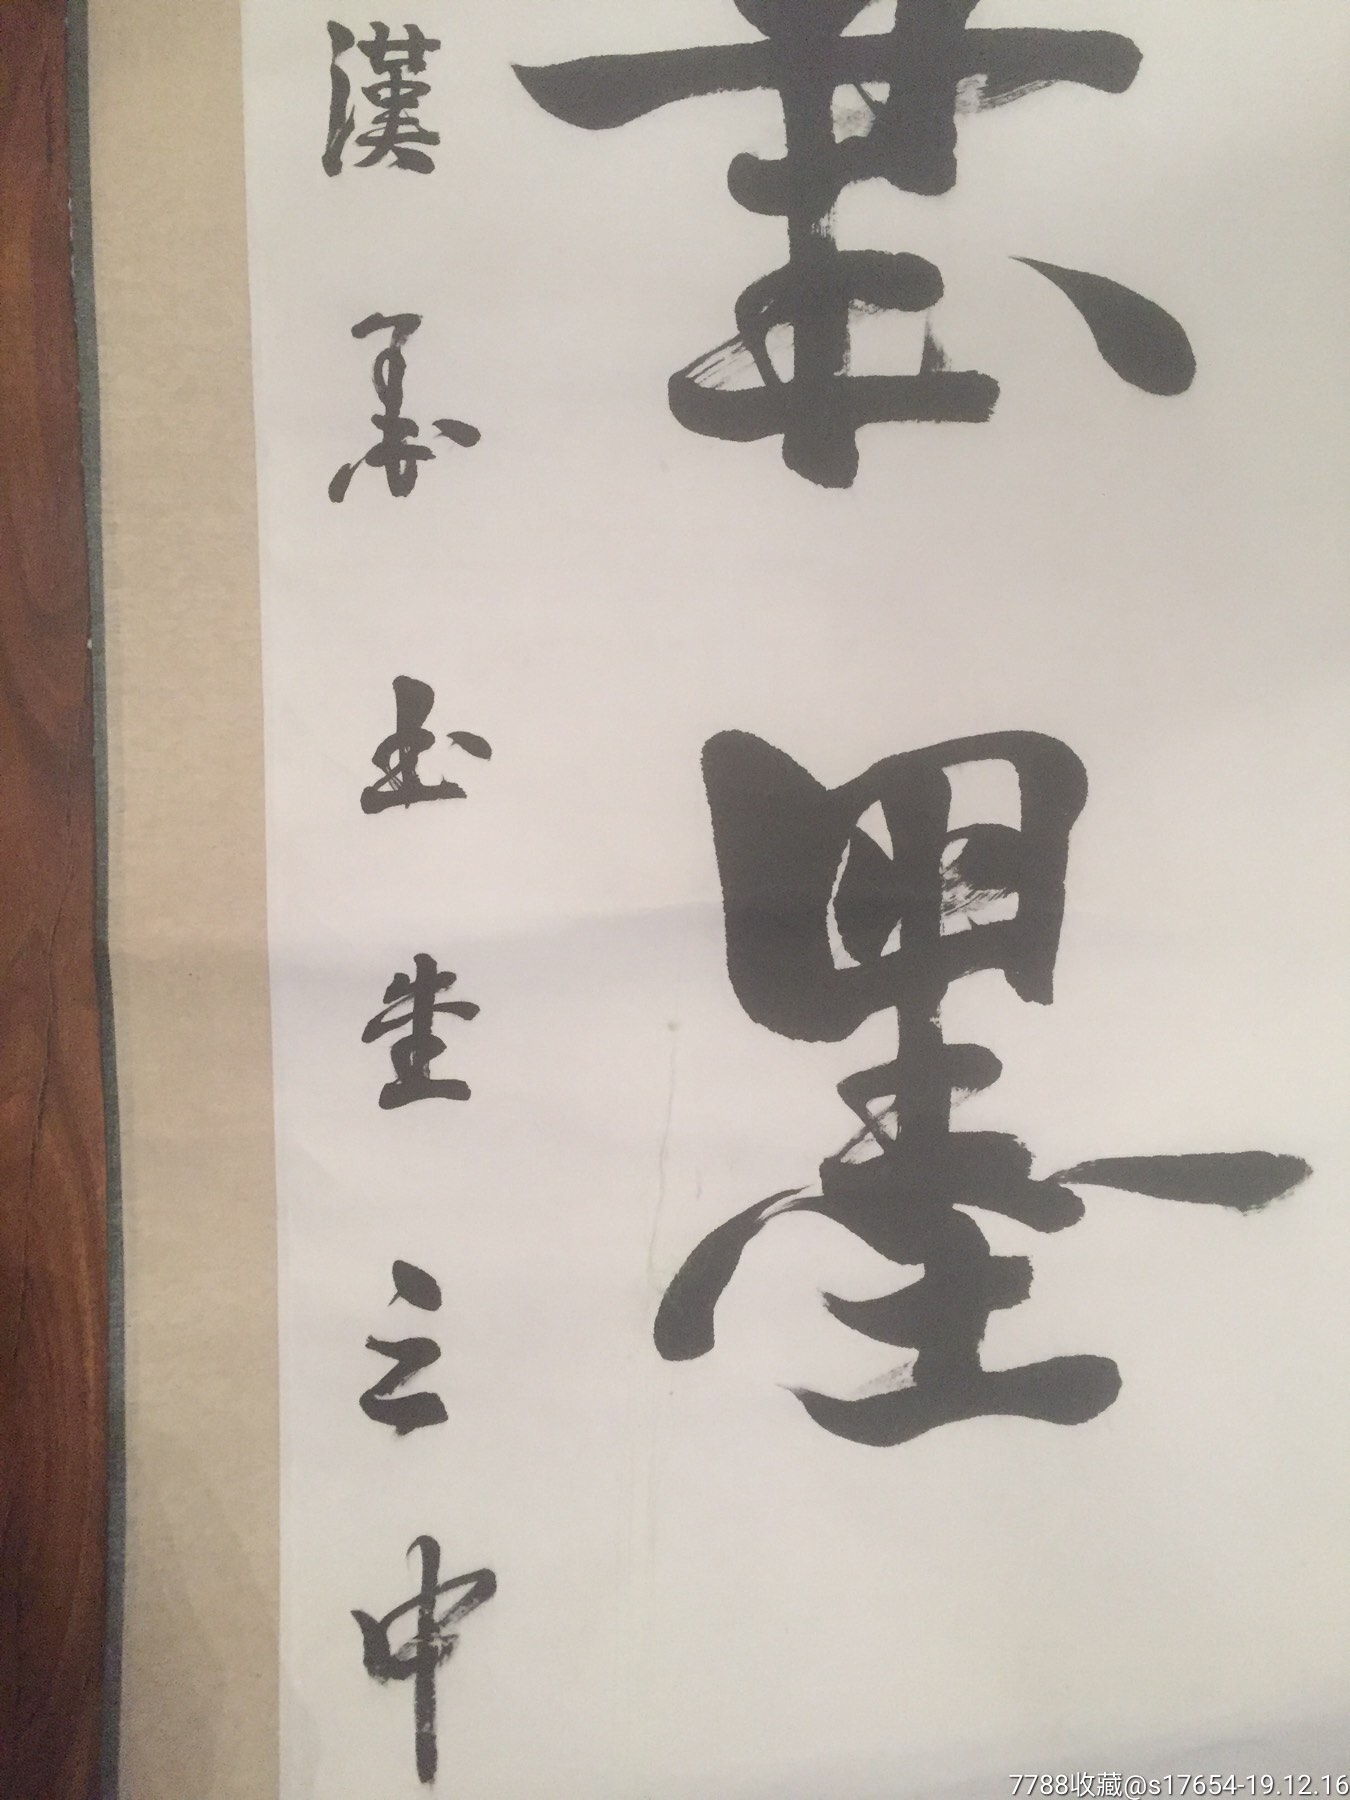 墨
漢玉堂之中
7788收藏@s17654-19.12.16